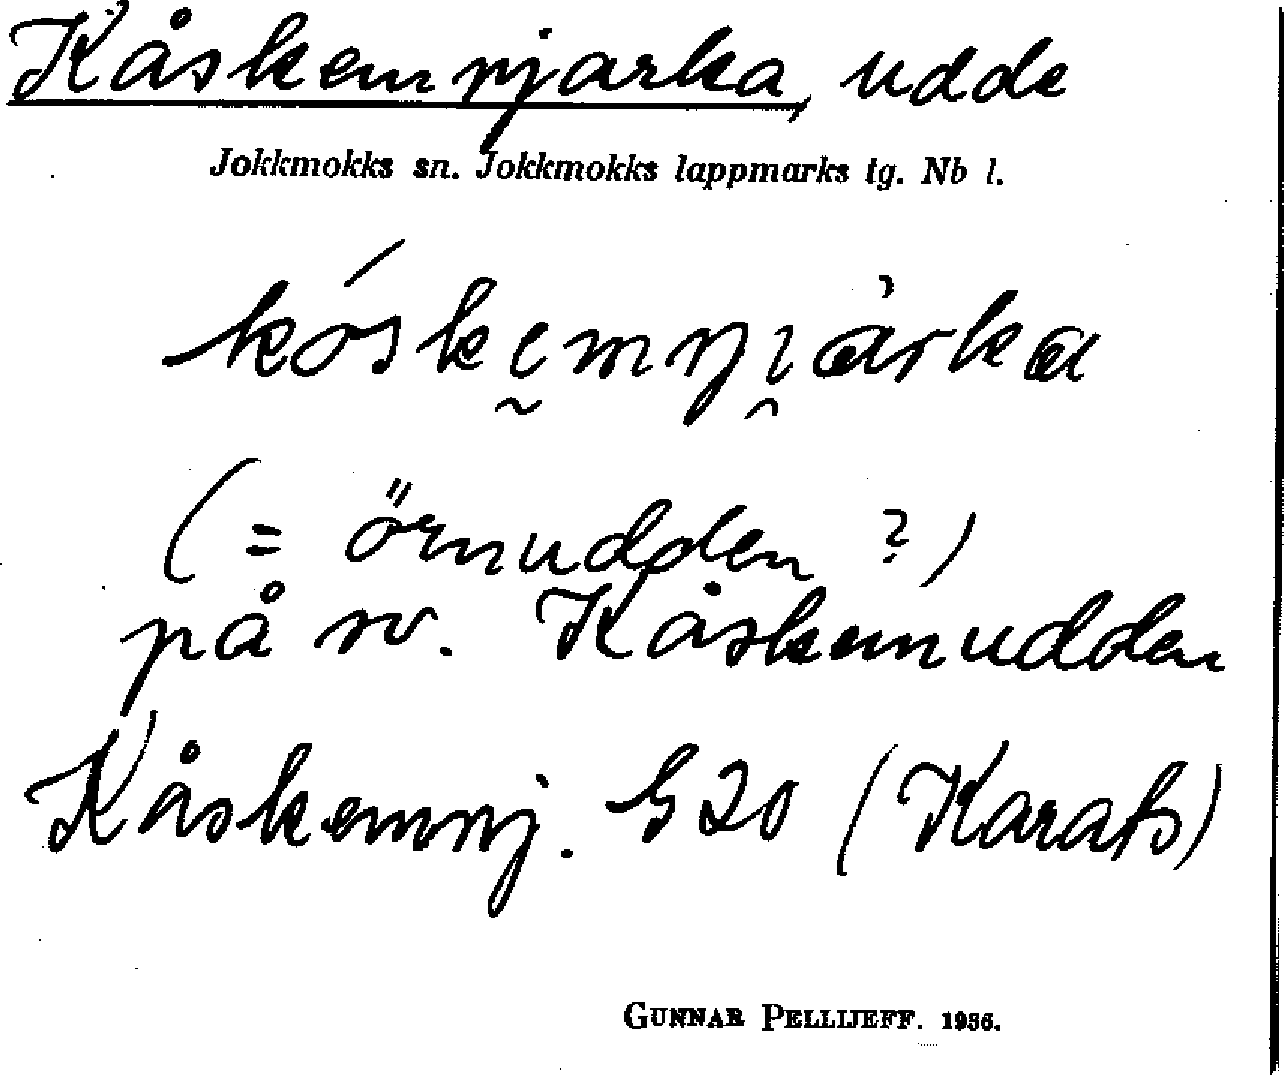 Kåskemnjarka, udde
Jokkmokks sn. Jokkmokks lappmarks tg. Nb l.
(= örnudden ?)
på sv. Kåskemudden
Kåskemnj. G20 (Karats)
GUNNAR PELLIJEFF. 1956.